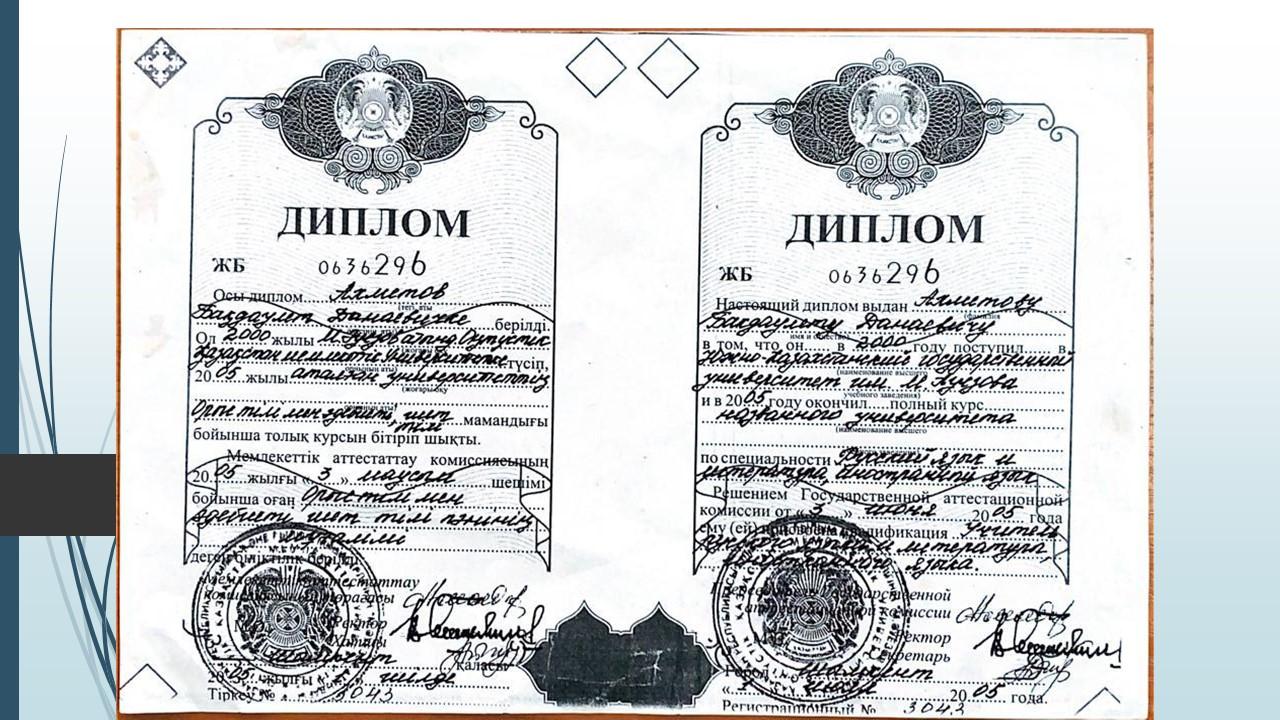 ДИПЛОМ
ЖБ 0636296
Осы диплом Ахметов
(тегі, аты
Бакдаулет Данаевичке берілді.
Ол 2000 жылы М.Әуезов атынд. Оңтүстік
Қазақстан мемлекеттік университетіне түсіп,
20 05 жылы аталған университеттің
(жоғары оқу
Орыс тілі мен әдебиеті, шет
тілі мамандығы
бойынша толық курсын бітіріп шықты.
Мемлекеттік аттестаттау комиссиясының
20 05 жылғы « 3 » маусым шешімі
бойынша оған орыс тілі мен
әдебиеті, шет тілі пәнінің
мұғалімі
деген біліктілік берілді
Мемлекеттік аттестаттау
комиссиясының төрағасы
Ректор
Хатшы
Шымкент қаласы
20 05 жылғы « » шілде
Тіркеу № 3043
ДИПЛОМ
ЖБ 0636296
Настоящий диплом выдан Ахметову
(фамилия
Бакдаулету Данаевичу
имя и отчество)
в том, что он в 2000 году поступил в
Южно-Казахстанский государственный
(наименование высшего
университет им. М. Ауезова
учебного заведения)
и в 20 05 году окончил полный курс
названного университета
(наименование высшего
по специальности Русский язык и
литература, иностранный язык
Решением Государственной аттестационной
комиссии от « 3 » июня 20 05 года
ему (ей) присвоена квалификация учитель
русского языка и литературы,
иностранного языка.
Председатель Государственной
аттестационной комиссии
Ректор
Секретарь
Город Шымкент
« » июля 20 05 года.
Регистрационный № 3043